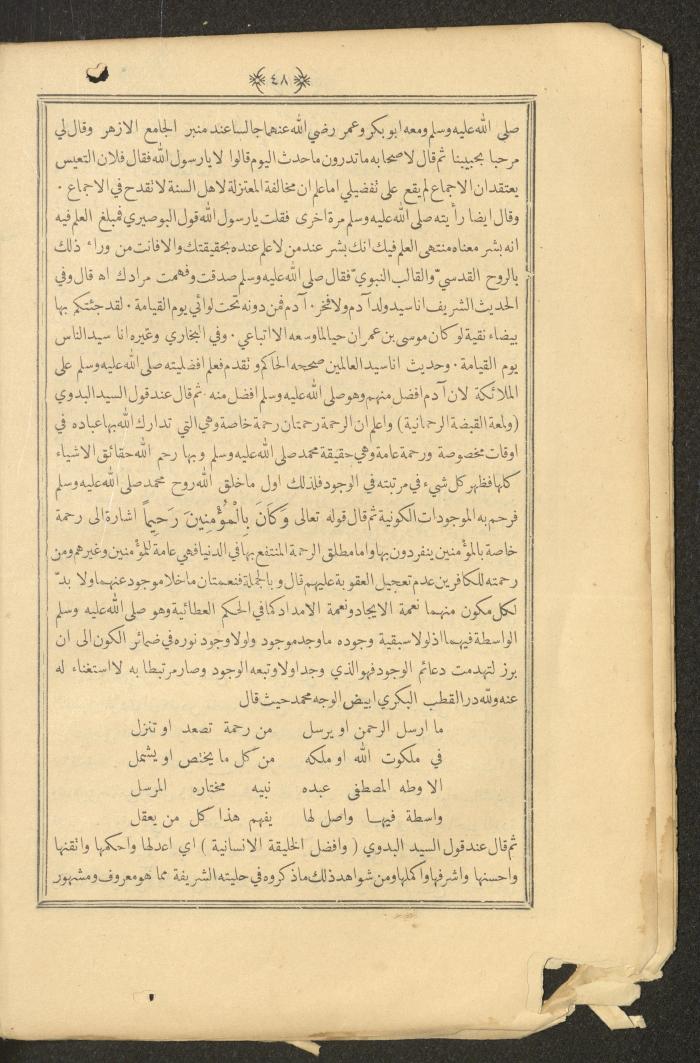 ﴿٤٨﴾
صلى الله عليه وسلم ومعه ابو بكر وعمر رضي الله عنهما جالسا عند منبر الجامع الازهر وقال لي
مرحبا بحبيبنا ثم قال لاصحابه ما تدرون ما حدث اليوم قالوا لا يا رسول الله فقال فلان التعيس
يعتقد ان الاجماع لم يقع على تفضيلي اما علم ان مخالفة المعتزلة لاهل السنة لا تقدح في الاجماع .
وقال ايضا رأيته صلى الله عليه وسلم مرة اخرى فقلت يا رسول الله قول البوصيري فمبلغ العلم فيه
انه بشر معناه منتهى العلم فيك انك بشر عند من لا علم عنده بحقيقتك والا فانت من وراء ذلك
بالروح القدسيّ والقالب النبويّ فقال صلى الله عليه وسلم صدقت وفهمت مرادك اه قال وفي
الحديث الشريف انا سيد ولد آدم ولا فخر . آدم فمن دونه تحت لوائي يوم القيامة . لقد جئتكم بها
بيضاء نقية لو كان موسى بن عمران حيا لما وسعه الا اتباعي . وفي البخاري وغيره انا سيد الناس
يوم القيامة . وحديث انا سيد العالمين صححه الحاكم وتقدم فعلم افضليته صلى الله عليه وسلم على
الملائكة لان آدم افضل منهم وهو صلى الله عليه وسلم افضل منه . ثم قال عند قول السيد البدوي
(ولمعة القبضة الرحمانية) واعلم ان الرحمة رحمتان رحمة خاصة وهي التي تدارك الله بها عباده في
اوقات مخصوصة ورحمة عامة وهي حقيقة محمد صلى الله عليه وسلم وبها رحم الله حقائق الاشياء
كلها فظهر كل شيء في مرتبته في الوجود فلذلك اول ما خلق الله روح محمد صلى الله عليه وسلم
فرحم به الموجودات الكونية ثم قال قوله تعالى وَكَانَ بِالْمُؤْمِنِينَ رَحِيماً اشارة الى رحمة
خاصة بالمؤمنين ينفردون بها واما مطلق الرحمة المنتفع بها في الدنيا فهي عامة للمؤمنين وغيرهم ومن
رحمته للكافرين عدم تعجيل العقوبة عليهم قال وبالجملة فنعمتان ما خلا موجود عنهما ولا بدّ
لكل مكون منهما نعمة الايجاد ونعمة الامداد كما في الحكم العطائية وهو صلى الله عليه وسلم
الواسطة فيهما اذ لولا سبقية وجوده ما وجد موجود ولولا وجود نوره في ضمائر الكون الى ان
برز لتهدمت دعائم الوجود فهو الذي وجد اولا وتبعه الوجود وصار مرتبطا به لا استغناء له
عنه ولله در القطب البكري ابيض الوجه محمد حيث قال
ما ارسل الرحمن او يرسل من رحمة تصعد او تنزل
في ملكوت الله او ملكه من كل ما يختص او يشمل
الا وطه المصطفى عبده نبيه مختاره المرسل
واسطة فيها واصل لها يفهم هذا كل من يعقل
ثم قال عند قول السيد البدوي (وافضل الخليقة الانسانية) اي اعدلها واحكمها واتقنها
واحسنها واشرفها واكملها ومن شواهد ذلك ما ذكروه في حليته الشريفة مما هو معروف ومشهور